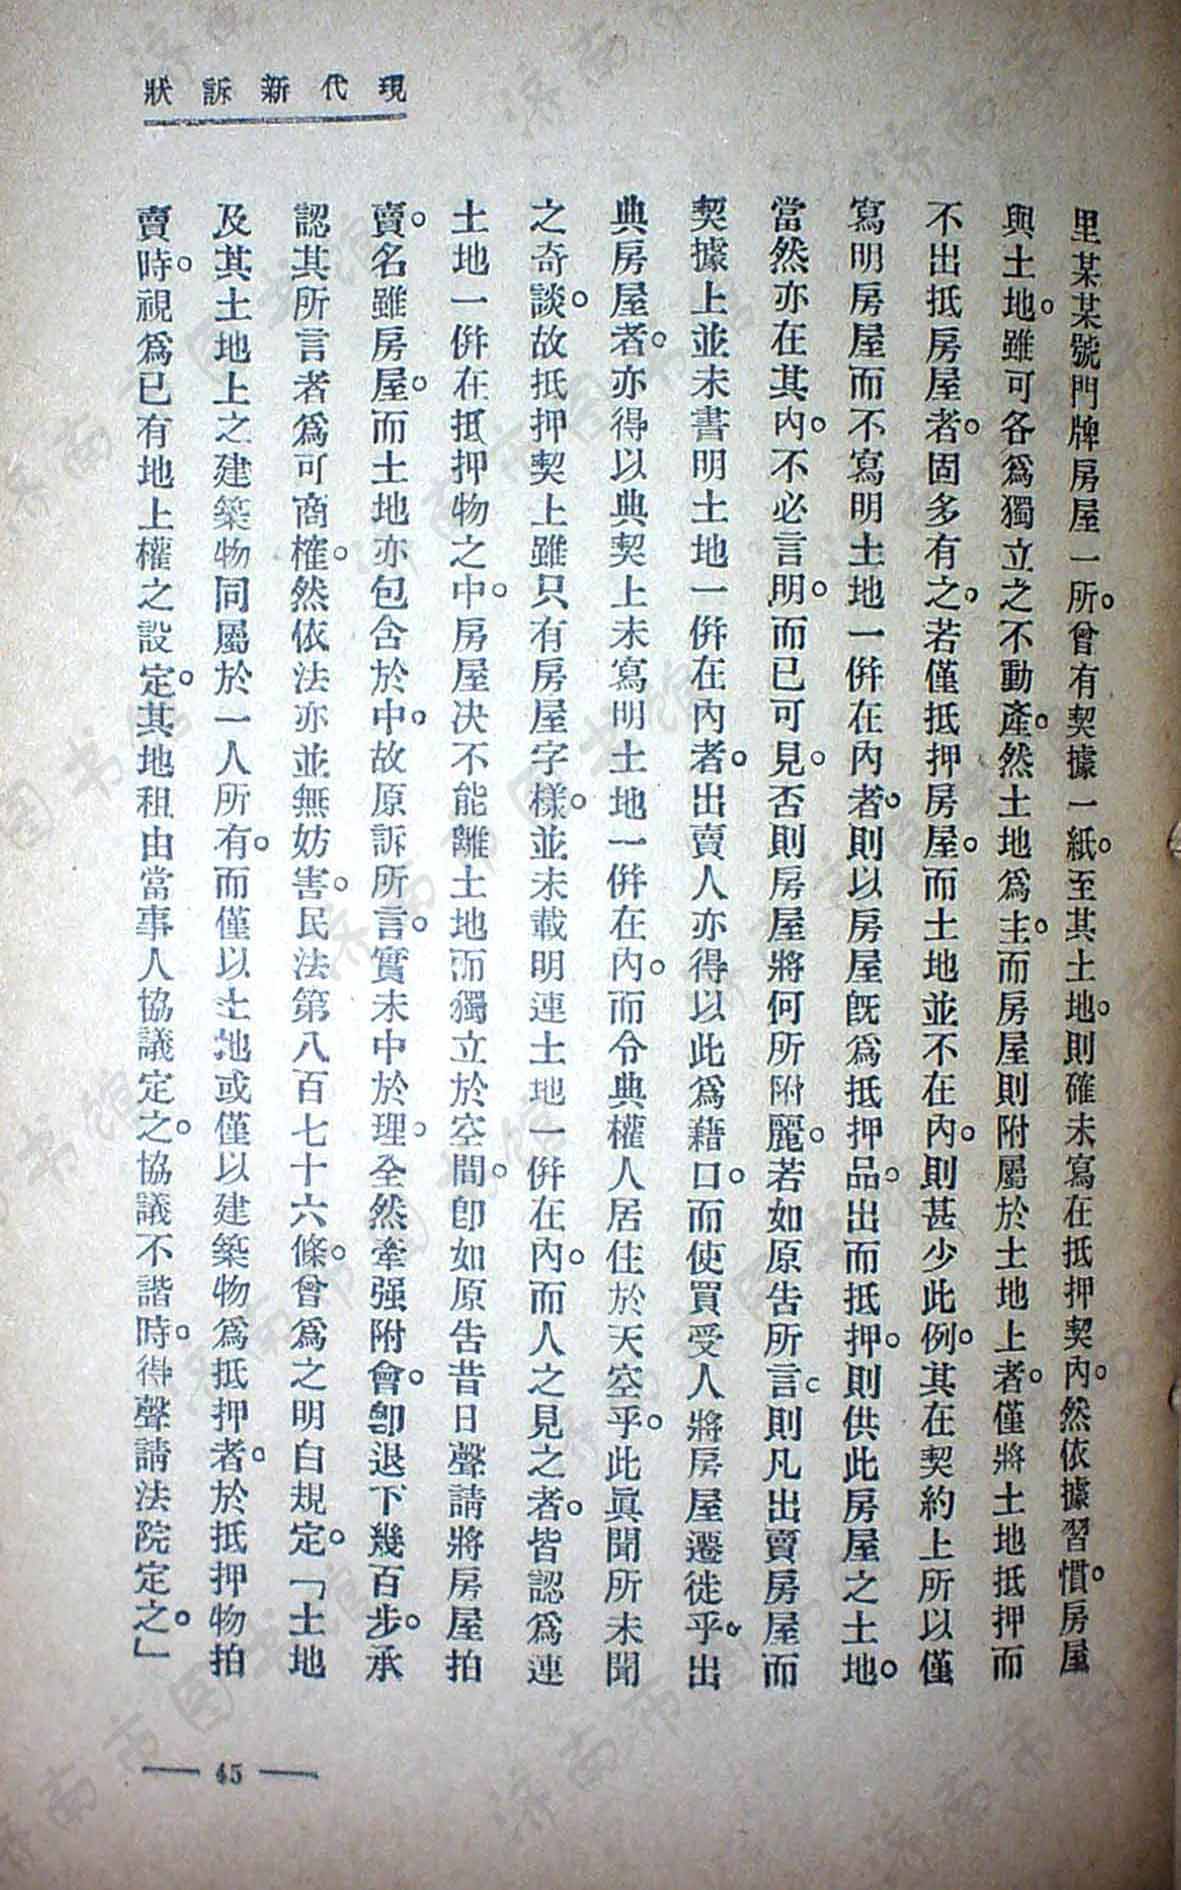 現代新訴狀
里某某號門牌房屋一所。曾有契據一紙。至其土地。則確未寫在抵押契內。然依據習慣。房屋
與土地。雖可各爲獨立之不動產。然土地爲主。而房屋則附屬於土地上者。僅將土地抵押而
不出抵房屋者。固多有之。若僅抵押房屋。而土地並不在內。則甚少此例。其在契約上所以僅
寫明房屋而不寫明土地一倂在內者。則以房屋旣爲抵押品。出而抵押。則供此房屋之土地。
當然亦在其內。不必言明。而已可見。否則房屋將何所附麗。若如原告所言。則凡出賣房屋而
契據上並未書明土地一倂在內者。出賣人亦得以此爲藉口。而使買受人將房屋遷徙乎。出
典房屋者。亦得以典契上未寫明土地一倂在內。而令典權人居住於天空乎。此眞聞所未聞
之奇談。故抵押契上雖只有房屋字樣。並未載明連土地一倂在內。而人之見之者。皆認爲連
土地一倂在抵押物之中。房屋決不能離土地而獨立於空間。卽如原告昔日聲請將房屋拍
賣。名雖房屋。而土地亦包含於中。故原訴所言。實未中於理。全然牽强附會。卽退下幾百步。承
認其所言者爲可商榷。然依法亦並無妨害。民法第八百七十六條。曾爲之明白規定。「土地
及其土地上之建築物同屬於一人所有。而僅以土地或僅以建築物爲抵押者。於抵押物拍
賣時。視爲已有地上權之設定。其地租由當事人協議定之。協議不諧時。得聲請法院定之。」
— 45 —
济南市图书馆